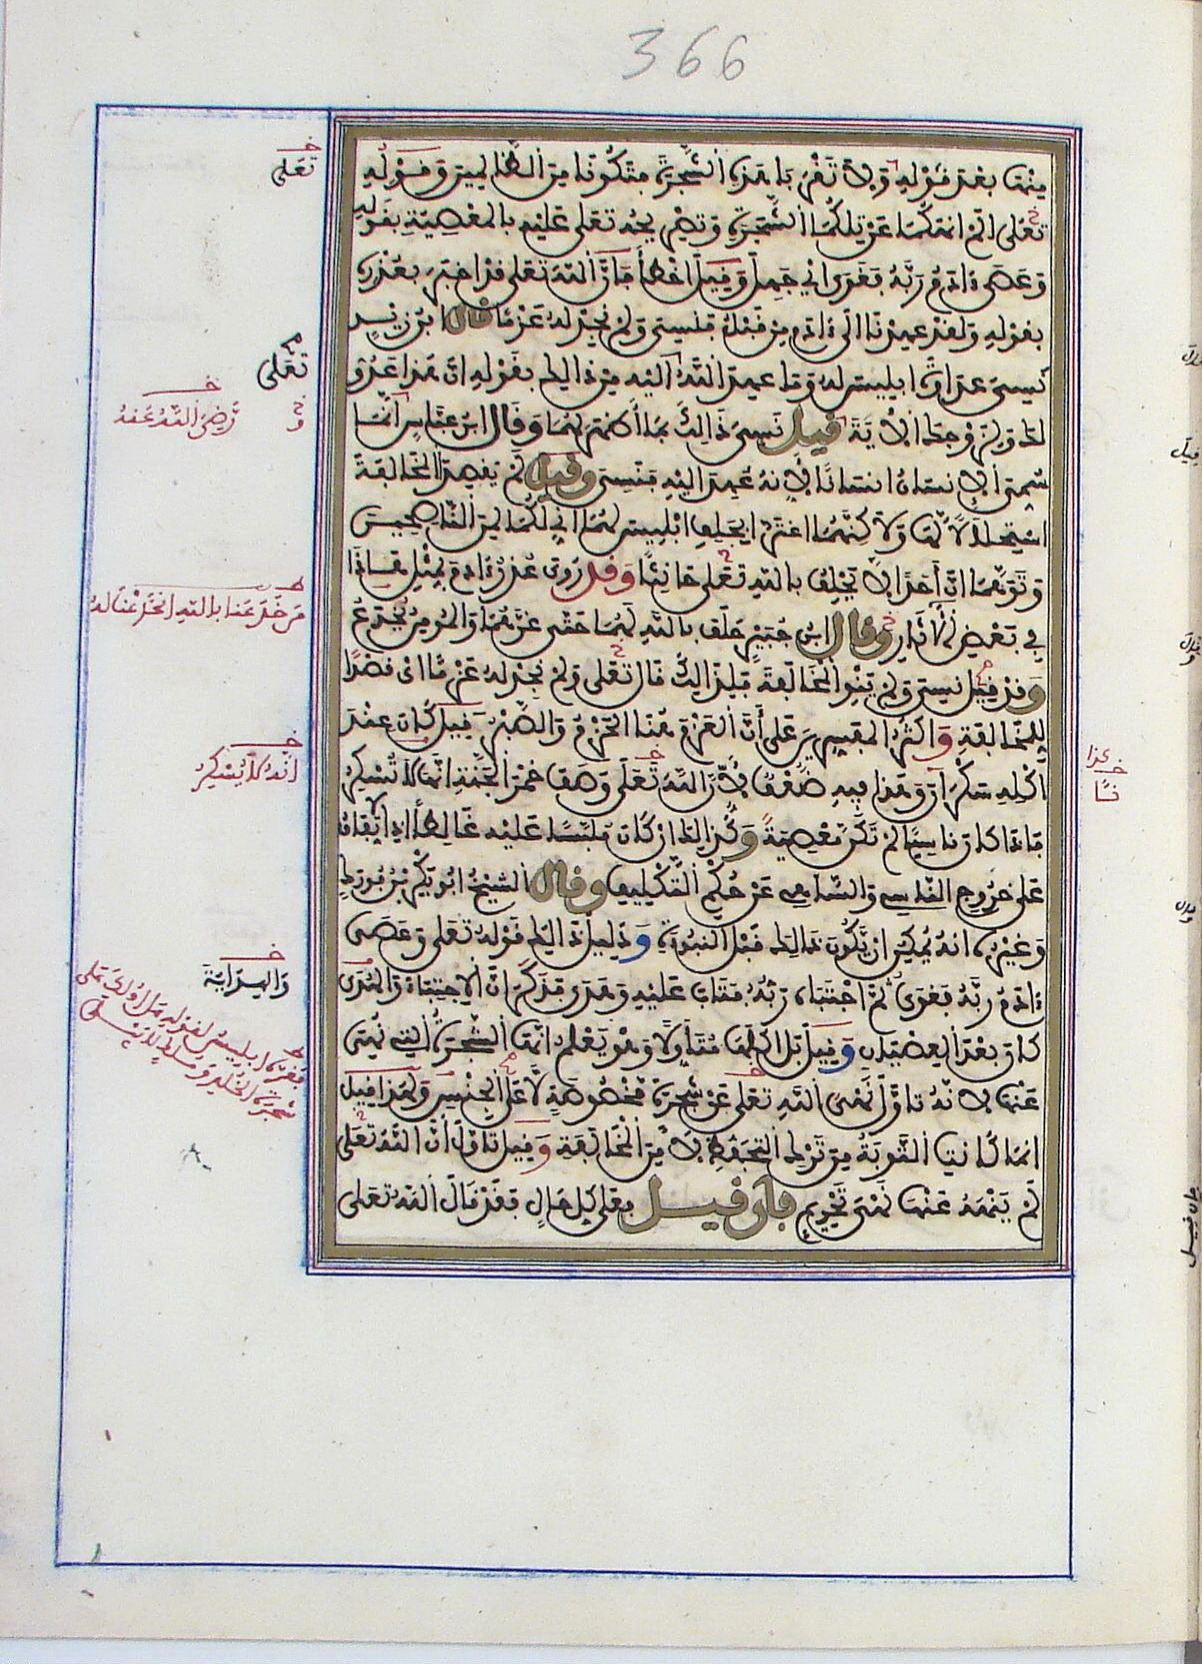 366
منها بعد قوله ولا تقربا هذه الشجرة فتكونا من الظالمين وقوله
تعلى ألم أنهكما عن تلكما الشجرة وتصريحه تعلى عليه بالمعصية بقوله
وعصى ءادم ربه فغوى اي جهل وقيل أخطأ فإن الله تعلى قد اخبر بعذره
بقوله ولقد عهدنا الى ءادم من قبل فنسي ولم نجد له عزما قال ابن زيد
نسي عداوة ابليس له وما عهد الله اليه من ذالك بقوله ان هذا عدو
لك ولزوجك الاية قيل نسي ذالك بما أظهر لهما وقال ابن عباس انما
سمي الانسان انسانا لانه عهد اليه فنسي وقيل لم يقصد المخالفة
استحلالا لها ولاكنهما اغترا بحلف ابليس لهما اني لكما لمن الناصحين
وتوهما ان أحدا لا يحلف بالله تعلى حانثا وقد روي عذر ءادم بمثل هاذا
في بعض الاثار وقال ابن جبير حلف بالله لهما حتى غرهما والمومن يخدع
وقد قيل نسي ولم ينو المخالفة فلذالك قال تعلى ولم نجد له عزما اي قصدا
للمخالفة واكثر المفسرين على أن العزم هنا الحزم والصبر قيل كان عند
اكله سكران وهذا فيه ضعف لأن الله تعلى وصف خمر الجنة انها لا تسكر
فاذا كان ناسيا لم تكن معصية وكذالك ان كان ملبسا عليه غالطا اذ الاتفاق
على خروج الناسي والساهي عن حكم التكليف وقال الشيخ ابو بكر بن فورك
وغيره انه يمكن ان يكون ذالك قبل النبوة ودليل ذالك قوله تعلى وعصى
ءادم ربه فغوى ثم اجتباه ربه فتاب عليه وهدى فذكر ان الاجتباء والهدى
كان بعد العصيان وقيل بل اكلها متأولا وهو يعلم انها الشجرة التي نهي
عنها لانه تاول نهي الله تعلى عن شجرة مخصوصة لا على الجنس ولهذا قيل
انما كانت التوبة من ترك التحفظ لا من المخالفة وقيل تاول ان الله تعلى
لم ينهه عنها نهي تحريم فان قيل فعلى كل حال فقد قال الله تعلى
تعلى
تعلى
رضي الله عنه
من خدعنا بالله انخدعنا له
انه لا يسكر
والهداية
فغره ابليس لقوله هل ادلك على
شجرة الخلد وملك لا يبلى